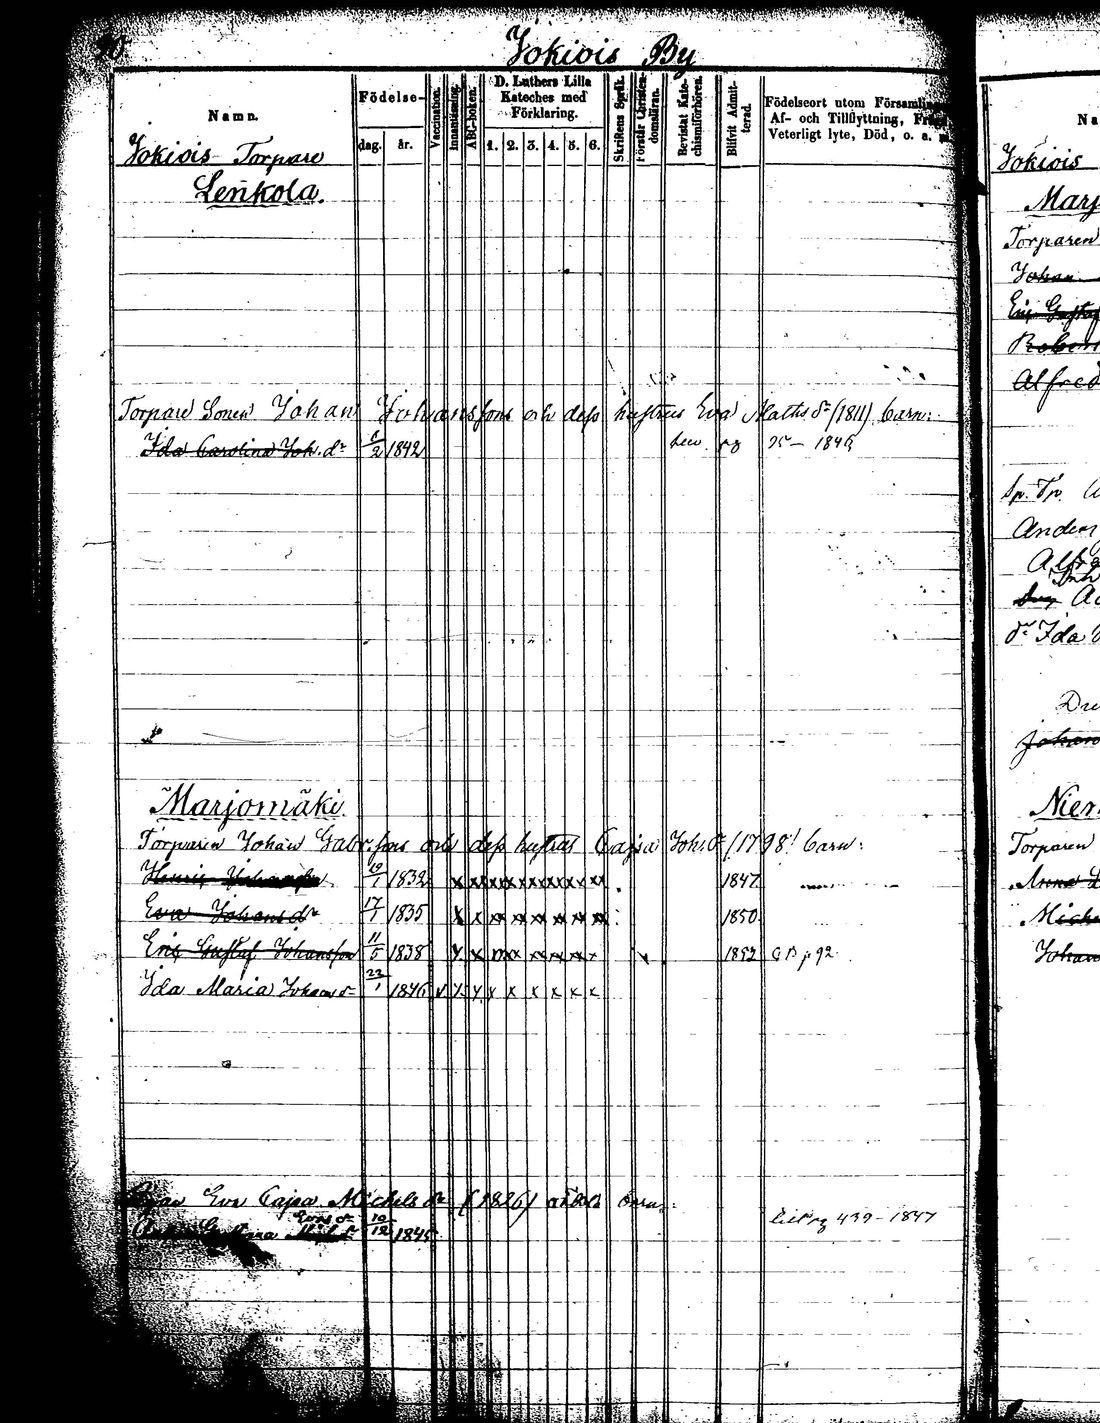 Jokiois By
Namn.
Födelse-
dag.
år.
Vaccination.
Innanläsning.
ABC-boken.
D. Luthers Lilla
Kateches med
Förklaring.
1. 2. 3. 4. 5. 6.
Skriftens Språk.
Förstår Christen-
domsläran.
Bevistat Kate-
chismiförhören.
Blifvit Admit-
terad.
Födelseort utom Församlin
Af- och Tillflyttning,
Veterligt lyte, Död, o. a.
Jokiois Torpare
Lenkola.
Torpare Sonen Johan Johansson och dess hustrus Eva Maths dr (1811) barn:
Ida Carolina Joh. dr 6/2 1842 pg 25 – 1846
Marjomäki.
Torparen Johan Gabr.sons och dess hustrus Cajsa Joh. dr (1798) barn:
Henric 19/1 1832 x xx xx xx xx xx xx xx 1847
Eva Johans dr 17/1 1835 x x xx xx xx xx xx xx 1850
Eric Gustaf Johansson 11/5 1838 x x xx xx xx xx x 1852 p 92
Ida Maria Johans dr 22/1 1846 v x x x x x x x x
Eva Cajsa Michels dr (1826) barn:
Eris dr
10/12 1845 pg 439 – 1847
Jokiois
Marj
Torparen
Johan
Eric Gustaf
Alfred
Sp. Tp.
Ander
dr Ida
Johan
Niem
Torparen
Anna
Miche
Johan